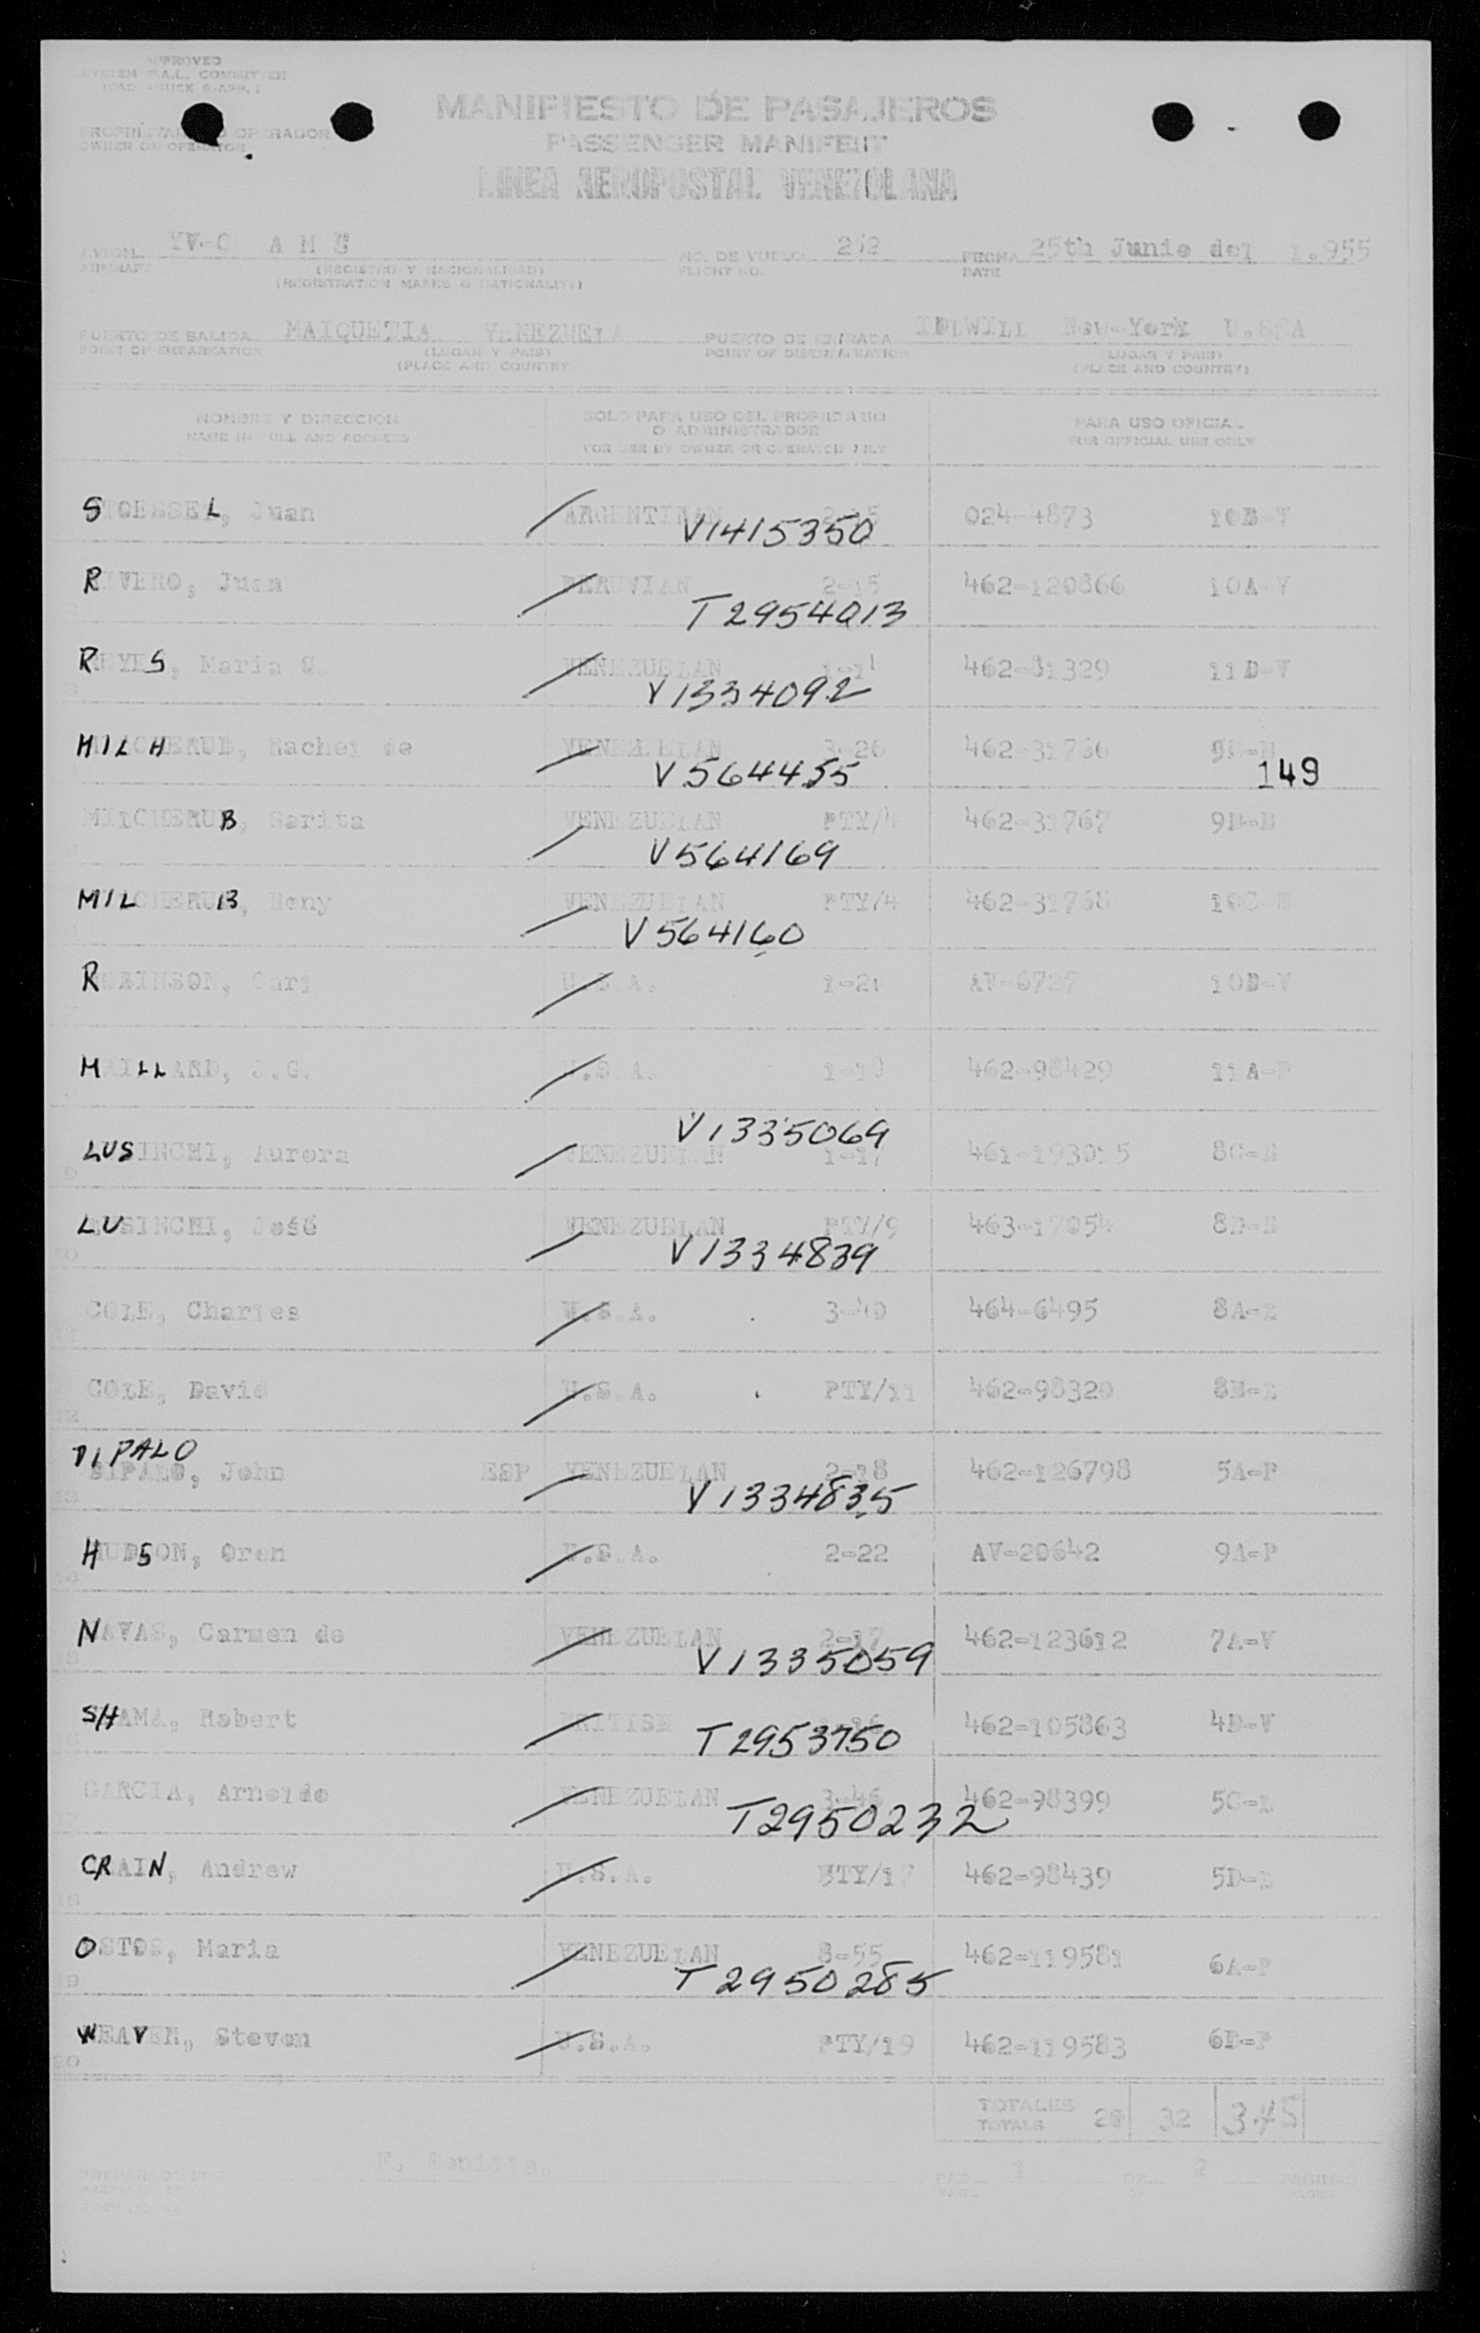 APPROVED
MANIFIESTO DE PASAJEROS
PASSENGER MANIFEST
OWNER OR OPERATOR
LINEA AEROPOSTAL VENEZOLANA
YV-C AME NO. DE VUELO 252 FECHA 25th Junio del 1.955
AIRCRAFT (REGISTRO Y NACIONALIDAD) FLIGHT NO. DATE
(REGISTRATION MARKS & NATIONALITY)
PUERTO DE SALIDA MAIQUETIA VENEZUELA PUERTO DE ENTRADA IDLWILL New-York U.S.A
POINT OF EMBARKATION (LUGAR Y PAIS) POINT OF DISEMBARKATION (LUGAR Y PAIS)
(PLACE AND COUNTRY) (PLACE AND COUNTRY)
NOMBRE Y DIRECCION SOLO PARA USO DEL PROPIETARIO PARA USO OFICIAL
NAME IN FULL AND ADDRESS O ADMINISTRADOR FOR OFFICIAL USE ONLY
FOR USE BY OWNER OR OPERATOR ONLY
STOESSEL, Juan ARGENTINAN 024-4873 10B-V
V1415350
RIVERO, Juan PERUVIAN 2-15 462-120866 10A-V
T2954013
REYES, Maria VENEZUELAN 462-81329 11D-V
V1334092
MILCHERUB, Rachel de VENEZUELAN 3-26 462-31766
V564455 149
MILCHERUB, Sarita VENEZUELAN PTY/4 462-31767
V564169
MILCHERUB, Beny VENEZUELAN PTY/4 462-31768
V564160
ROBINSON, Carl U.S.A. 1-21 10D-V
MAILLARD, J.G. U.S.A. 462-98429 11A-P
V1335069
LUSINCHI, Aurora VENEZUELAN 1-17 461-193015
LUSINCHI, José VENEZUELAN PTY/9
V1334839
COLE, Charles U.S.A. 3-40 464-6495
COLE, David U.S.A. PTY/11 462-98320
DIPALO
SIPALO, John ESP VENEZUELAN 2-18 462-126798 5A-P
V1334835
HUDSON, Oren U.S.A. 2-22 AV-20642 9A-P
NAVAS, Carmen de VENEZUELAN 2-17 462-123612 7A-V
V1335059
SHAMA, Robert BRITISH 462-105863 4D-V
T2953750
GARCIA, Arnoldo VENEZUELAN 3-46 462-98399
T2950232
CRAIN, Andrew U.S.A. PTY/17 462-98439
OSTOS, Maria VENEZUELAN 8-55 462-119581 6A-P
T2950285
WEAVEM, Steven U.S.A. PTY/19 462-119583
TOTALES
TOTALS 20 32 345